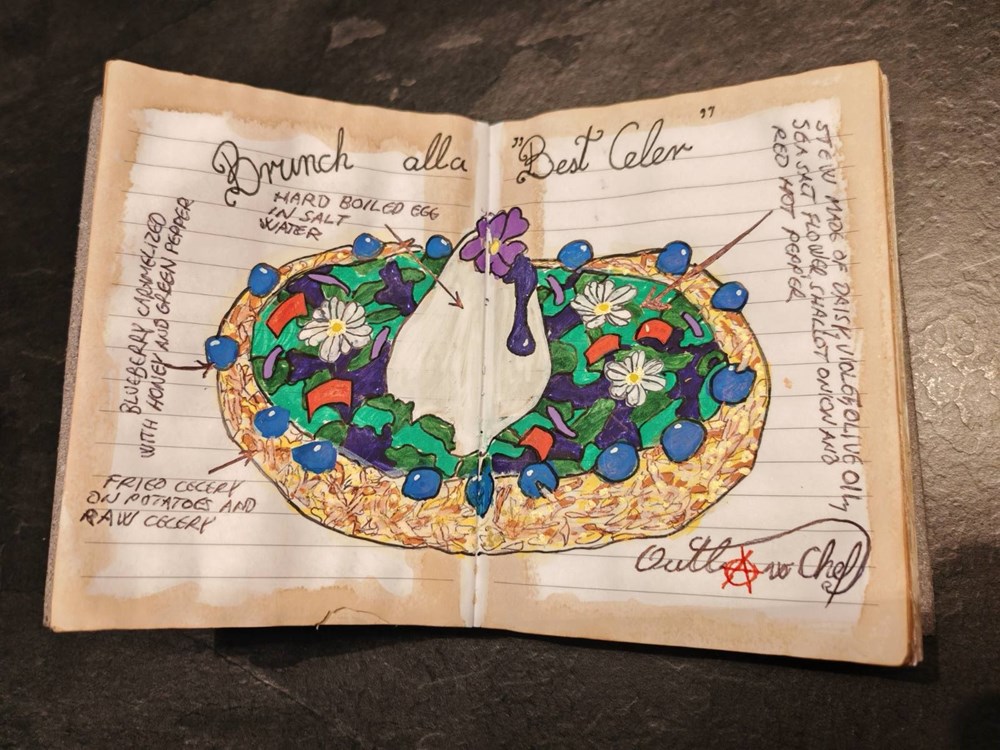 Brunch alla "Best Celer"
HARD BOILED EGG
IN SALT
WATER
BLUEBERRY CARAMELIZED
WITH HONEY AND GREEN PEPPER
FRIED CECERY
ON POTATOES AND
RAW CECERY
STEIN MADE OF DAISY, VIOLET, OLIVE OIL,
SEA SALT FLOWER, SHALLOT ONION AND
RED HOT PEPPER
OutlAw Chef